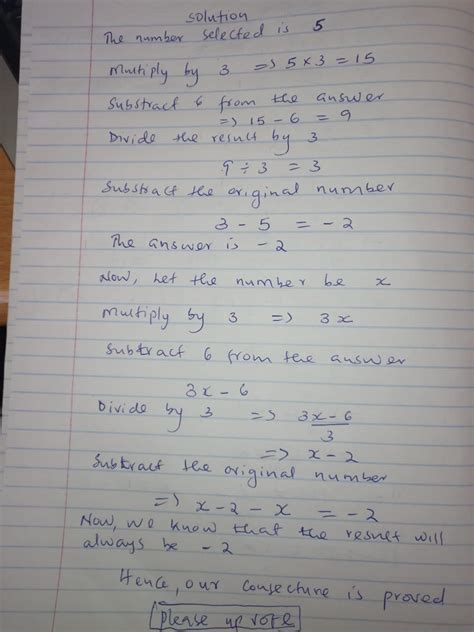 Solution
The number selected is 5
Multiply by 3 => 5 × 3 = 15
Substract 6 from the answer
=> 15 - 6 = 9
Divide the result by 3
9 ÷ 3 = 3
Substract the original number
3 - 5 = -2
The answer is -2
Now, Let the number be x
Multiply by 3 => 3x
Subtract 6 from the answer
3x - 6
Divide by 3 => 3x-6/3
=> x - 2
Subtract the original number
=> x - 2 - x = -2
Now, we know that the result will
always be -2
Hence, our conjecture is proved
please up vote